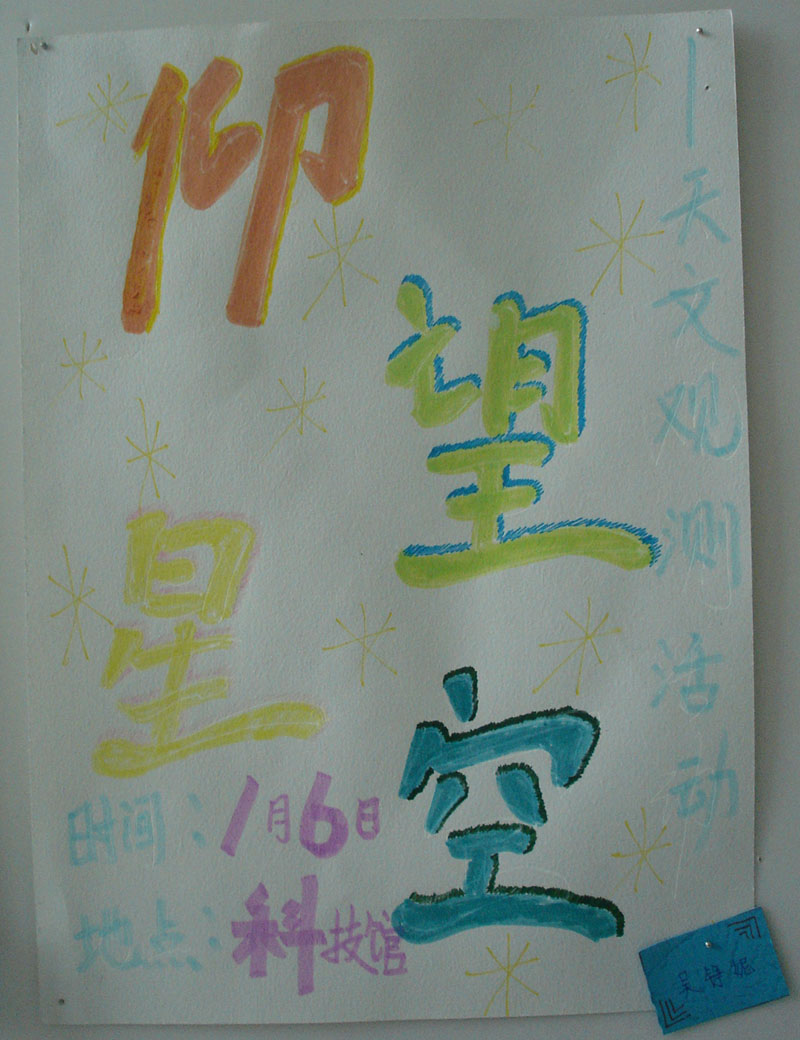 仰望星空
—天文观测活动
时间：1月6日
地点：科技馆